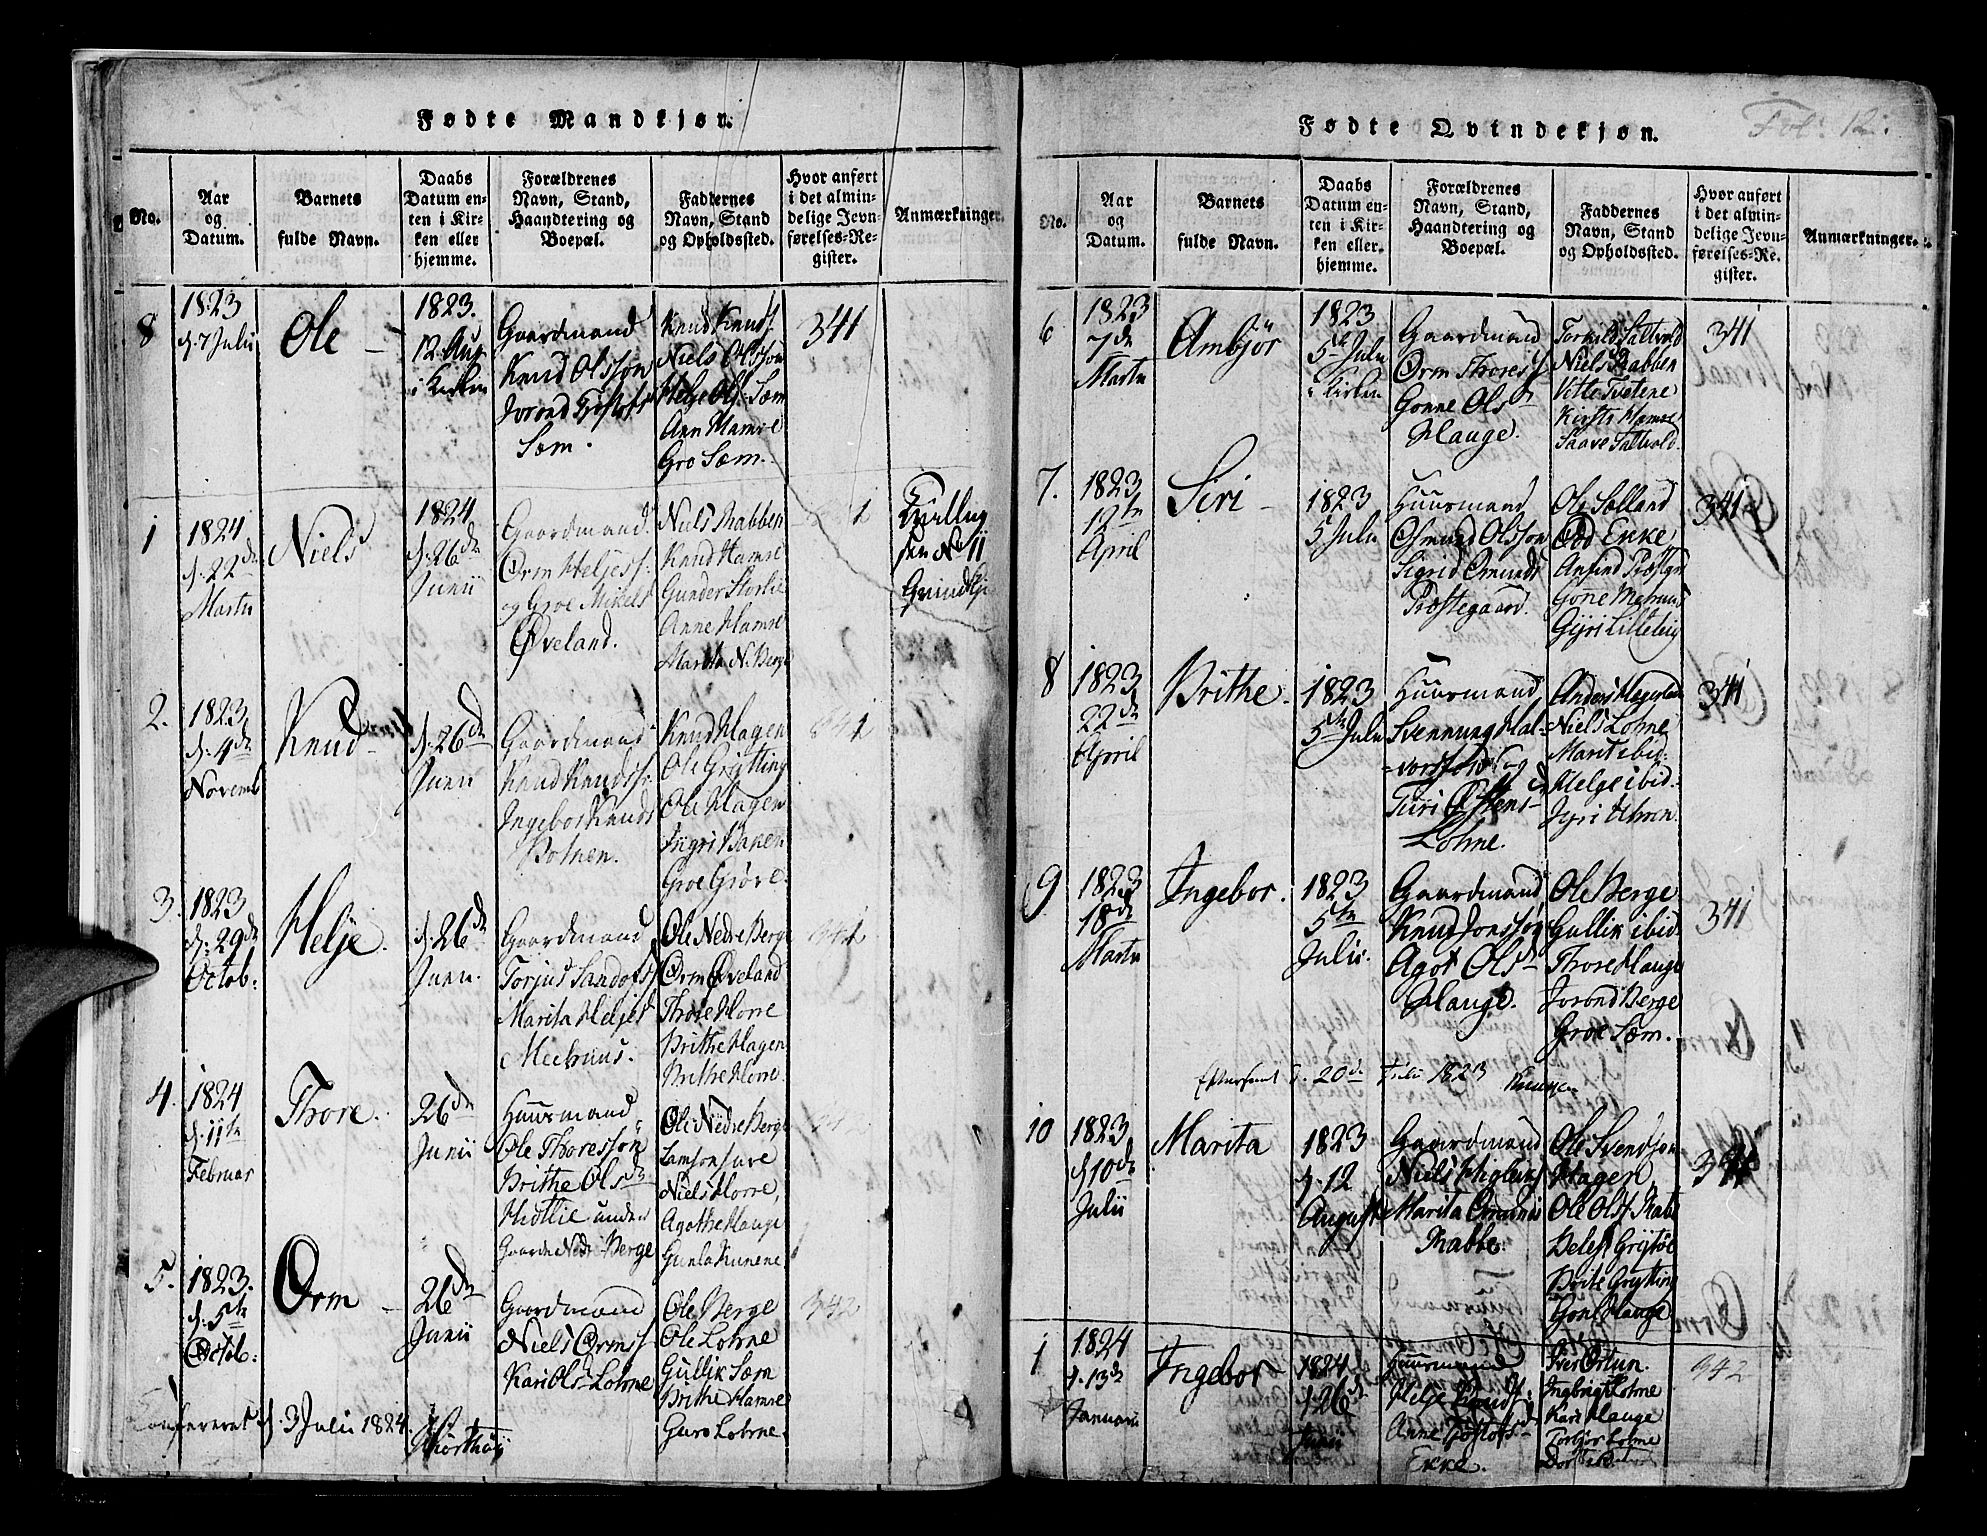 Fødte Mandkjøn.
No.
Aar
og
Datum.
Barnets
fulde Navn.
Daabs
Datum en-
ten i Kir-
ken eller
hjemme.
Forældrenes
Navn, Stand,
Haandtering og
Boepæl.
Faddernes
Navn, Stand
og Opholdssted.
Hvor anført
i det almin-
delige Jevn-
førelses-Re-
gister.
Anmærkninger.
8
1823
d. 7 Julii
Ole
1823.
12 Aug
i Kirken
Gaardmand
Knud Olsson
Jorond
Sæm.
Knud Knuds.
Niels Olsson
Helje Ols. Sæm
Ann Hamre
Gro Sæm.
341
1
1824
d. 22de
Martii
Niels
1824
d. 26de
Junii
Gaardmand
Orm Heljess.
og Groe Mikels
Øveland.
Niels Rabben
Knud Hamre
Gunder Storlie
Anne Hamre
Marita N. Berge
Tvilling
No 11
2.
1823
d. 4de
Novemb
Knud
d. 26de
Junii
Gaardmand
Knud Knudss.
Ingebor Knuds
Botnen.
Knud Hagen
Ole Grytting
Ole Hagen
Ingri Baken
Groe Grøve.
3.
1823
d. 29de
Octob:
Helje.
d. 26de
Junii.
Gaardmand
Torjus Sandofs
Marita Heljesd
Meehuus.
Ole Nedre Berge
Orm Øveland
Thore Horre
Brithe Hagen
Brithe Horre
4.
1824
d. 11te
Februar
Thore.
26de
Junii
Huusmand
Ole Thoresson
Brithe Olsdr
under
Gaarden Nedre Berge
Ole Nedre Berge
Niels Horre,
Agothe Hauge
Gunla Kunene
5.
1823.
d. 5te
Octob:
Orm
26de
Junii
Gaardmand
Niels Ormss
Kari Ols Lohne
Ole Berge
Ole Lohne
Gullik Sæm
Brithe Hamre
Guro Lohne.
342
Confereret d. 3 Julii 1824.
Fødte Qvindekjøn.
Fol: 12.
No.
Aar
og
Datum.
Barnets
fulde Navn.
Daabs
Datum en-
ten i Kir-
ken eller
hjemme.
Forældrenes
Navn, Stand,
Haandtering og
Boepæl.
Faddernes
Navn, Stand
og Opholdssted.
Hvor anført
i det almin-
delige Jevn-
førelses-Re-
gister.
Anmærkninger.
6
1823
7de
Martii
Ambjør
1823
5te Julii
i Kirken
Gaardmand
Orm Thoress
Gonne Ols
Hauge.
Torkild Tattvold
Niels Rabben
Vetle Tvetene
Kirsti Hamre
Saave Tattvold.
341
7.
1823
12te
April
Siri
1823
5 Julii
Huusmand
Osmund Olsson
Sigrid Omunds
Præstegaard.
Ole Sælland
Odd Ekke
Anfind Præstgr
Gonne Mehuus
Gyri Lillebig
341
8
1823
22de
April
Brithe
1823
5te Julii
Huusmand
Svennung Hal-
vorsson og
Turi Østens
Lohne.
Anders
Niels Lohne
Marit ibid:
Helge ibid.
Jyri
341
9
1823
18de
Martii
Ingebor.
1823
5te
Julii.
Gaardmand
Knud Jonsson
Agot Ols
Hauge.
Ole Berge
Gullik ibid.
Thore Hauge
Jorond Berge
Groe Sæm.
341
d. 20de Julii 1823
10
1823
d 10de
Julii
Marita
1823
d. 12
August
Gaardmand
Niels
Marita
Rabbe.
Ole Svendson
Hagen
Ole Olss Rabb
Brite Grytting
Hauge
1
1824
d. 13de
Januarii
Ingebor
1824
d 26de
Junii
Huusmand
Helje Knuds:
Anne
Ekke.
Iver Ortun.
Ingbrigt Lohne
Kari Hauge
Torbjør Lohne
342